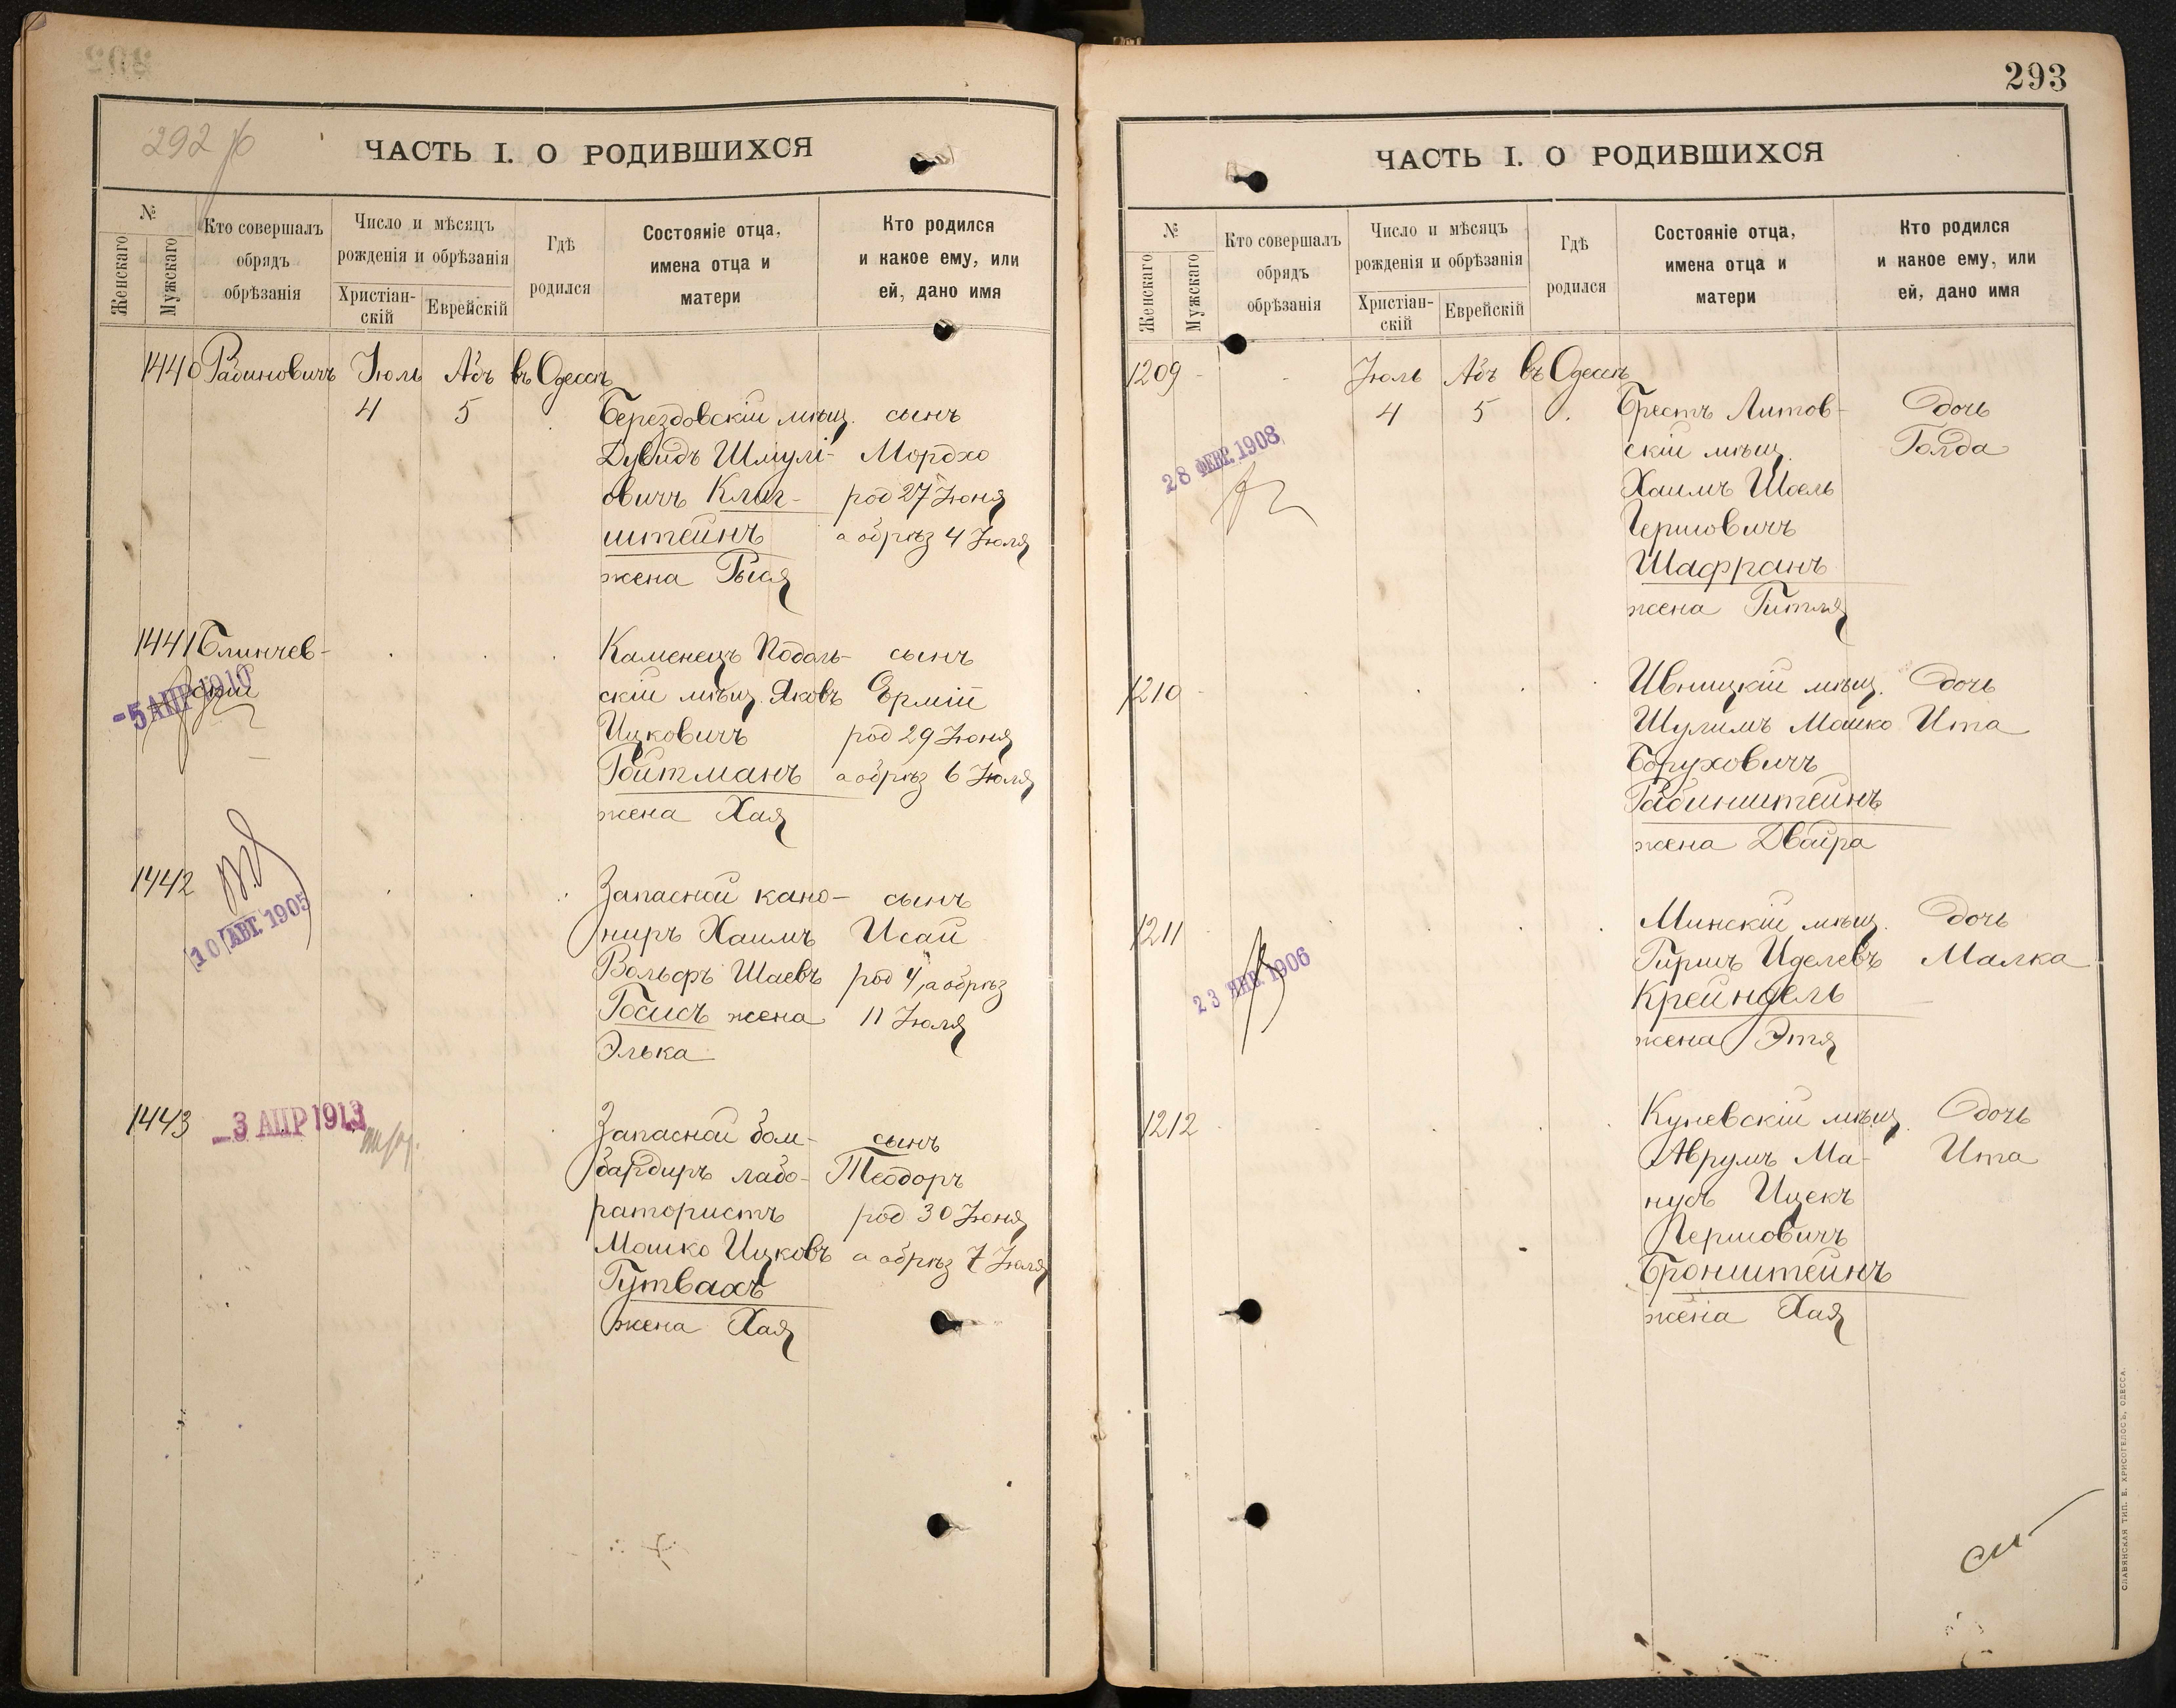 293
292 об
ЧАСТЬ I. О РОДИВШИХСЯ
№
Женскаго
Мужскаго
Кто совершалъ
обрядъ
обрѣзанія
Число и мѣсяцъ
рожденія и обрѣзанія
Христіан-
скій
Еврейскій
Гдѣ
родился
Состояніе отца,
имена отца и
матери
Кто родился
и какое ему, или
ей, дано имя
1440 Рабиновичъ Іюль Абъ въ Одессѣ
4 5 Берездовскій мѣщ. сынъ
Дувидъ Шмулі- Мордхо
овичъ Клиг- род 27 Іюня
штейнъ а обрѣз 4 Іюля
жена Рыся
1441 Блинчев- Каменецъ Подоль- сынъ
скій скій мѣщ. Яковъ Ермій
-5 АПР 1910
Ицковичъ род 29 Іюня
Ройтманъ а обрѣз 6 Іюля
жена Хая
1442 Запасной кано- сынъ
ниръ Хаимъ Исай
10 АВГ. 1905
Вольфъ Шаевъ род 4, а обрѣз
Госисъ жена 11 Іюля
Элька
1443 -3 АПР 1913 Запасной бом- сынъ
бардиръ лабо- Теодоръ
ратористъ род 30 Іюня
Мошко Ицковъ а обрѣз 7 Іюля
Гутвахъ
жена Хая
ЧАСТЬ I. О РОДИВШИХСЯ
№
Женскаго
Мужскаго
Кто совершалъ
обрядъ
обрѣзанія
Число и мѣсяцъ
рожденія и обрѣзанія
Христіан-
скій
Еврейскій
Гдѣ
родился
Состояніе отца,
имена отца и
матери
Кто родился
и какое ему, или
ей, дано имя
1209 Іюль Абъ въ Одессѣ
4 5 Брестъ Литов- дочь
скій мѣщ. Голда
28 ФЕВР. 1908
Хаимъ Шоель
Гершовичъ
Шафранъ
жена Гитля
1210 Ивницкій мѣщ. дочь
Шулимъ Мошко Ита
Боруховичъ
Рабинштейнъ
жена Двойра
1211 Минскій мѣщ. дочь
Гиршъ Иделевъ Малка
23 ЯНВ. 1906
Крейндель
жена Этя
1212 Куневскій мѣщ. дочь
Аврумъ Ма- Ита
нусъ Ицекъ
Лершовичъ
Бронштейнъ
жена Хая
СЛАВЯНСКАЯ ТИП. Е. ХРИСОГЕЛОСЪ, ОДЕССА.